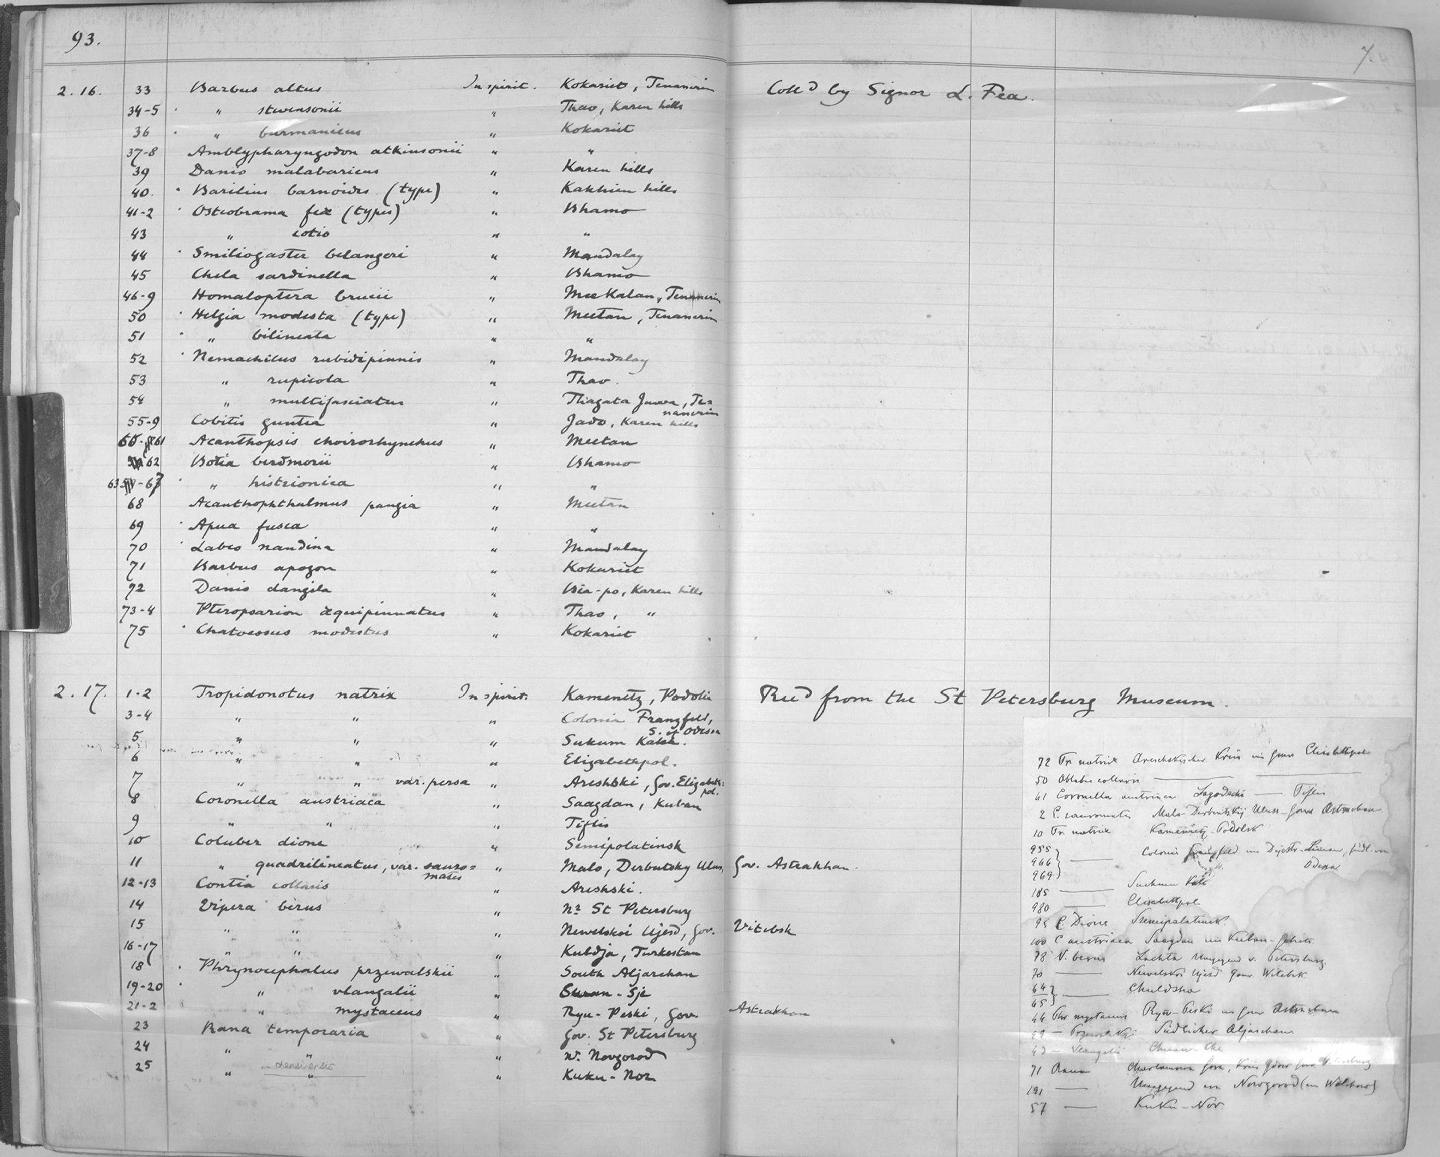 93.
7.
2.16. 33 Barbus altus In spirit. Kokarit, Tenasserim Coll'd by Signor L. Fea.
34-5 " stevensonii " Thao, Karen hills
36 " burmanicus " Kokarit
37-8 Amblypharyngodon atkinsonii " "
39 Danio malabaricus " Karen hills
40. Barilius barnoides (type) " Kakhien hills
41-2 Osteobrama feæ (types) " Bhamo
43 " cotio " "
44 Smiliogaster belangeri " Mandalay
45 Chela sardinella " Bhamo
46-9 Homaloptera brucii " Meekalan, Tenasserim
50 Helgia modesta (type) " Meetan, Tenasserim
51 " bilineata " "
52 Nemachilus rubidipinnis " Mandalay
53 " rupicola " Thao.
54 " multifasciatus " Thagata Juwa, Te=
nasserim
55-9 Cobitis guntea " Jado, Karen hills
60-61 Acanthopsis choirorhynchus " Meetan
62 Botia berdmorii " Bhamo
63-67 " histrionica " "
68 Acanthophthalmus pangia " Meetan
69 Apua fusca " "
70 Labeo nandina " Mandalay
71 Barbus apogon " Kokarit
72 Danio dangila " Bia-po, Karen hills
73-4 Pteropsarion æquipinnatus " Thao, "
75 Chatoessus modestus " Kokarit
2.17. 1-2 Tropidonotus natrix In spirit. Kamenetz, Podolia Rec'd from the St Petersburg Museum.
3-4 " " " Colonia Franzfeld,
S. of Odessa
5 " " " Sukum Kalé.
6 " " " Elizabethpol.
7 " " var. persa " Areshski, Gov. Elizabeth=
pol.
8 Coronella austriaca " Saagdan, Kuban
9 " " " Tiflis
10 Coluber dione " Semipolatinsk
11 " quadrilineatus, var. sauro=
mates " Malo, Derbutsky Ulus, Gov. Astrakhan.
12-13 Contia collaris " Areshski.
14 Vipera berus " Nr St Petersburg
15 " " " Newelskoi Ujesd, Gov. Vitebsk
16-17 " " " Kuldja, Turkestan
18 Phrynocephalus przewalskii " South Aljarchan
19-20 " vlangalii "
21-2 " mystaceus " Ryn-Peski, Gov. Astrakhan
23 Rana temporaria " Gov. St Petersburg
24 " " " Nr. Novgorod
25 " " " Kuku-Nor
72 Tr. natrix Areschskischer Kreis im Gouv. Elisabethpol
50 Ablabes collaris
61 Coronella austriaca Lagodechi Tiflis
2 C. sauromates Malo-Derbutskij Uluss Gouv. Astrachan
10 Tr. natrix Kamenetz-Podolsk
955
966
969 Colonie Franzfeld
Odessa
185 Suchum Kalé
980 Elisabethpol
95 C. Dione Semipalatinsk
100 C. austriaca Saagdan im Kuban-Gebiet
78 V. berus Lachta Umgegend v. Petersburg
70 Newelskoi Ujesd Gouv. Witebsk
64
65 Chuldsha
44 Phr. mystaceus Ryn-Peski im Gouv. Astrachan
Südlicher Aljaschan
71 Rana
191 Umgegend von Nowgorod
57 Kuku-Nor